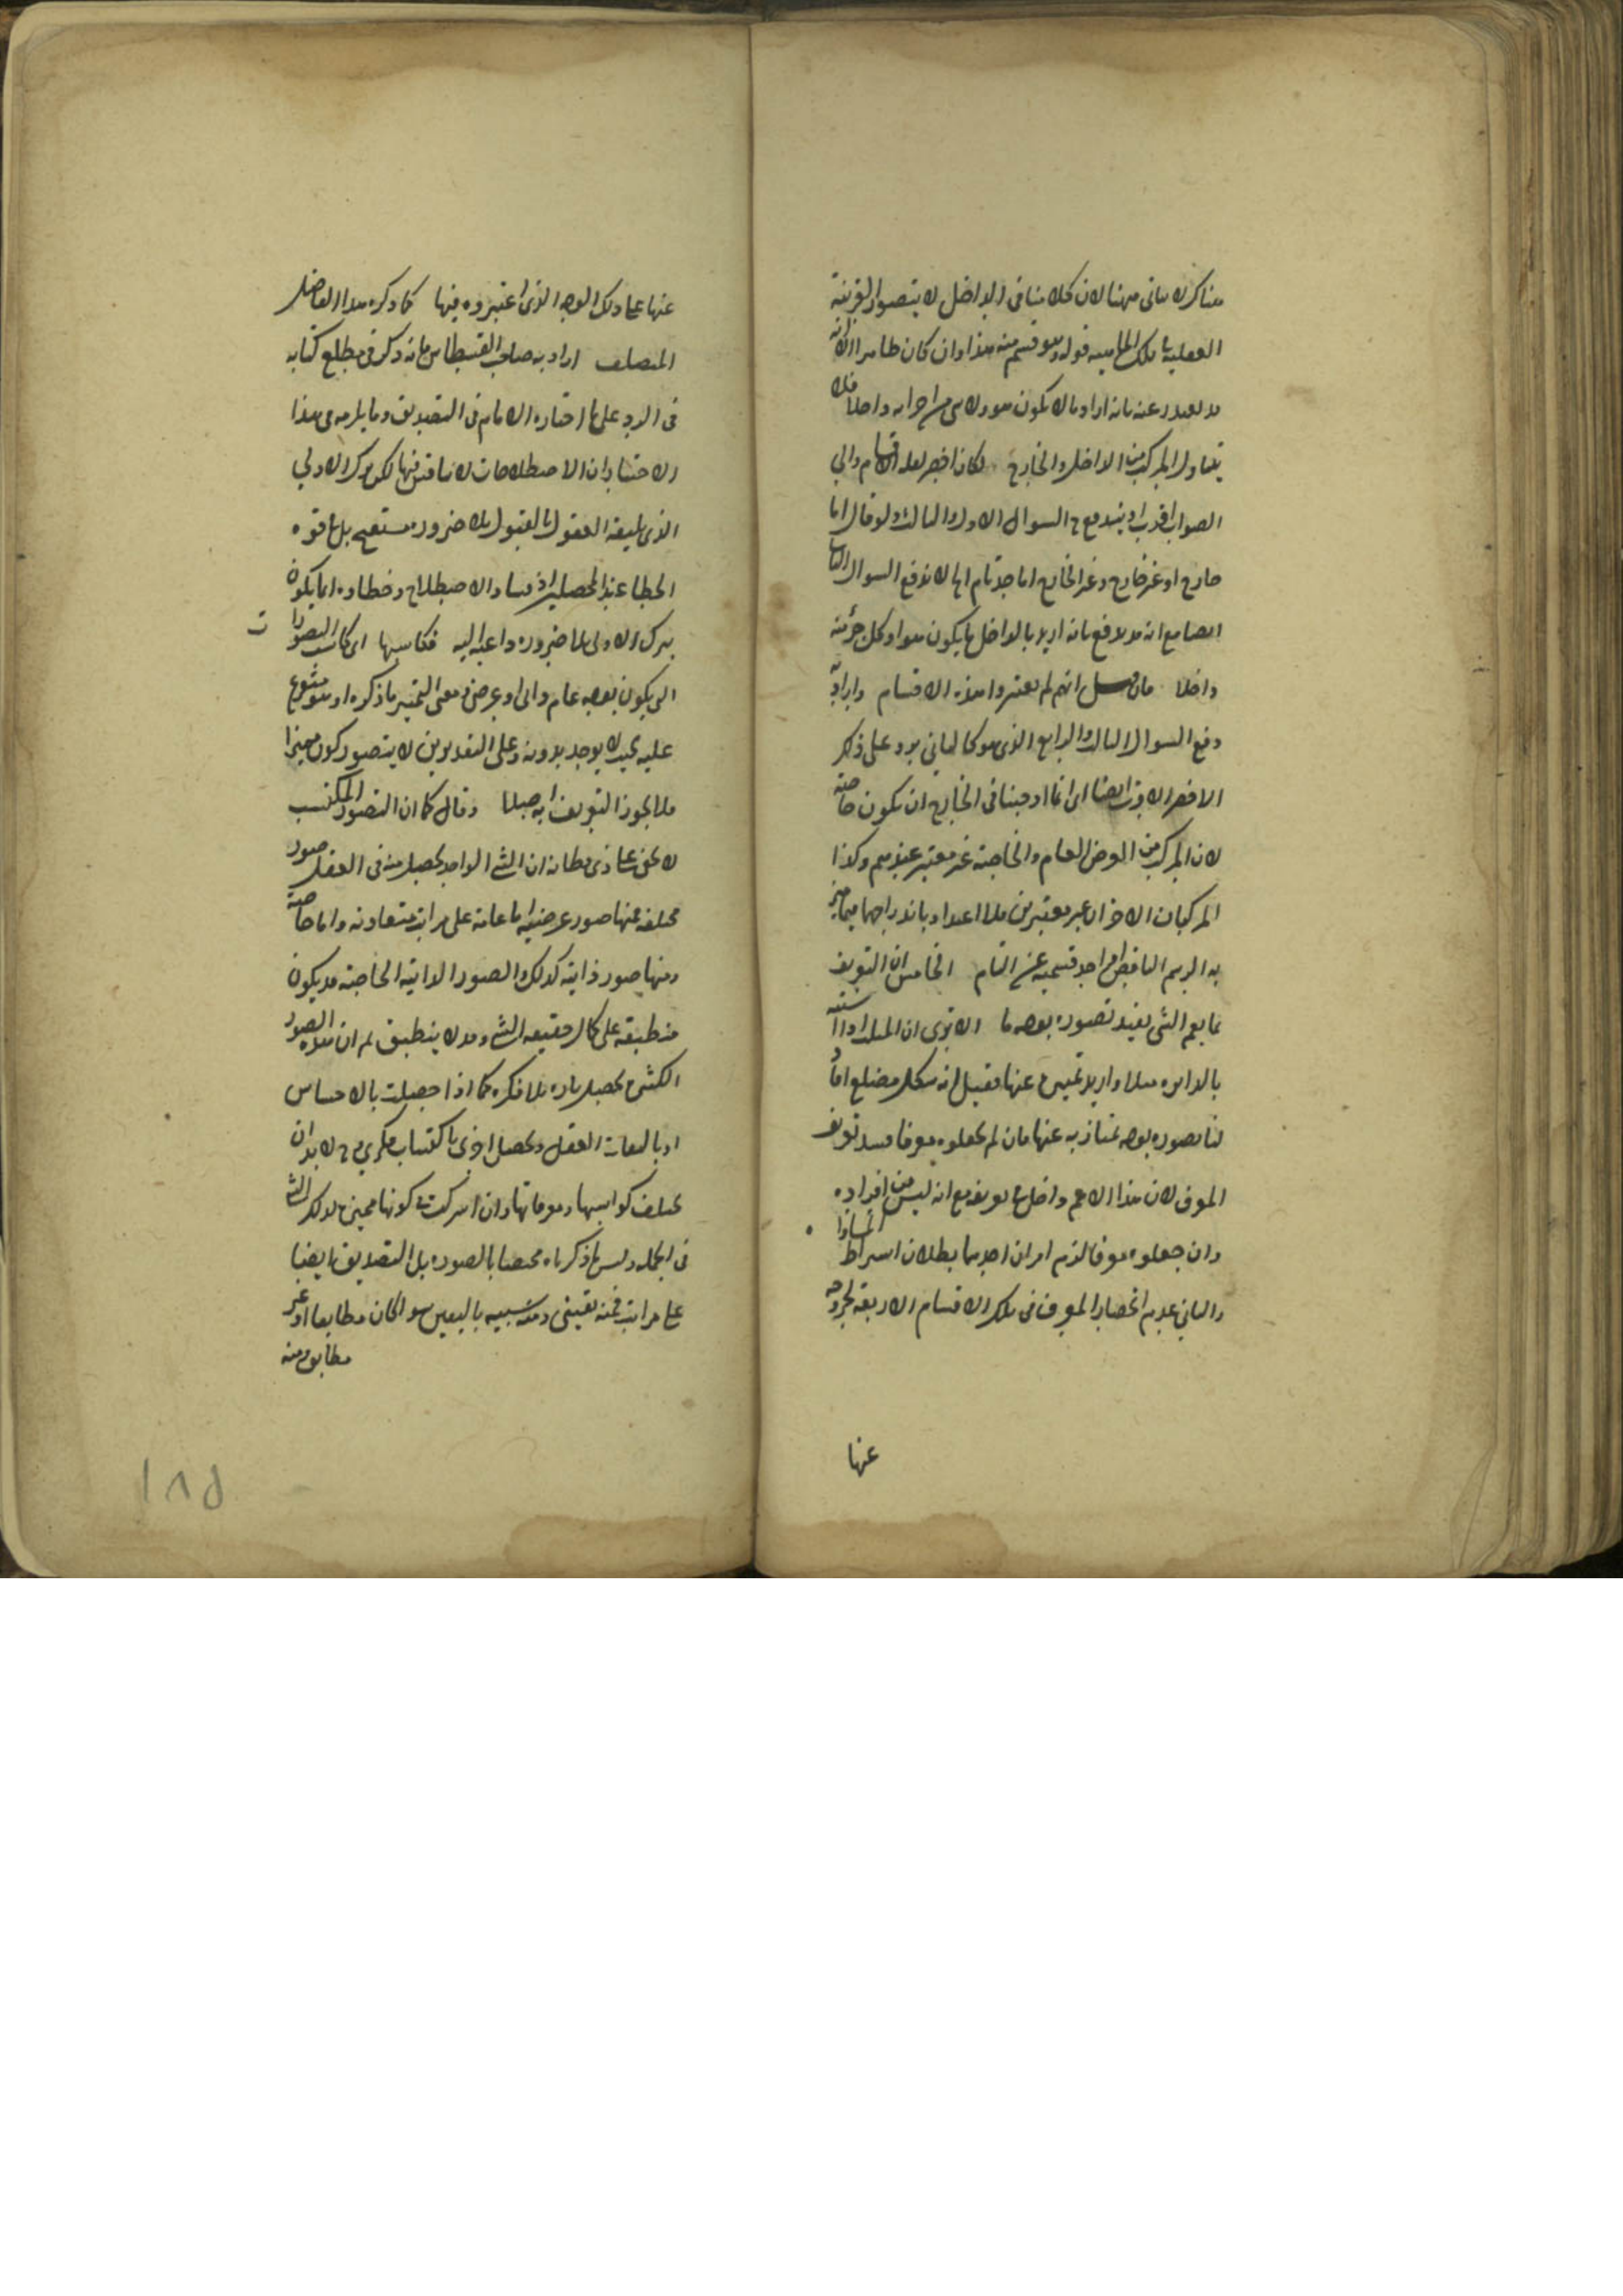 هناك لا ياتى ههنا لان كلامنا فى الداخل لا يتصور القرينة
العقلية قوله وهو قسم منه هذا وان كان ظاهرا الا انه
قد يعتذر عنه بانه اراد ما لا يكون هو ولا شى من اجزائه داخلا فلا
يتناول المركب من الداخل والخارج لكان اخصر لعله الاقسام والى
الصواب اقرب اذ يندفع ح السوال الاول والثالث ولو قال اما
خارج او غير خارج وغير الخارج اما حد تام الخ لاندفع السوال الثانى
ايضا مع انه قد يدفع بانه اريد بالداخل ما يكون هو او كل جزء منه
داخلا فان قيل انهم لم يعتبروا هذه الاقسام
دفع السوال الثالث والرابع الذى هو كالثانى يرد على ذلك
الاخصر الاقرب ايضا اى انما اوجبنا فى الخارج ان يكون خاصة
لان المركب من العرض العام والخاصة غير معتبر عندهم وكذا
المركبان الاخران غير معتبرين فلا اعتداد باندراجهما فيما
به الرسم الناقص اى احد قسميه غير التام الخامس ان التعريف
بما يعم الشى يفيد تصوره بوجه ما الا ترى ان المثلث اذا اشتبه
بالدايره مثلا واريد تمييزه عنها فقيل انه شكل مضلع افاد
لنا تصوره بوجه يمتاز به عنها فان لم يجعلوه معرفا فسد تعريف
المعرف لان هذا الاعم داخل فى تعريفه مع انه ليس من افراده
وان جعلوه معرفا لزم امران احدهما بطلان اشتراط المساواة
والثانى عدم انحصار المعرف فى تلك الاقسام الاربعة لخروجه
عنها
عنها على ذلك الوجه الذى اعتبروه فيها كما ذكره هذا الفاضل
المتصلف اراد به صاحب القسطاس فانه ذكر فى مطلع كتابه
فى الرد على ما اختاره الامام فى التصديق وما يلزمه من هذا
الاختيار ان الاصطلاحات لا يناقش فيها لكن ترك الاولى
الذى تلقته العقول بالقبول بلا ضرورة مستقبح بل فى قوة
الخطا عند المحصلين اذ فساد الاصطلاح وخطاوه انما يكون
بترك الاولى بلا ضرورة داعية اليه فكاسبها اى كاسب التصورات
التى يكون بوجه عام ذاتى او عرضى معنى التمييز ما ذكره او هو متنوع
عليه بحيث لا يوجد بدونه وعلى التقديرين لا يتصور كون مميزا
فلا يجوز التعريف به اصلا وقال كما ان التصور المكتسب
لا يخفى على ذى فطانة ان الشى الواحد يحصل منه فى العقل صور
مختلفة منها صور عرضية اما عامة على مراتب متفاوتة واما خاصة
ومنها صور ذاتية كذلك والصور الذاتية الخاصة قد يكون
منطبقة على كمال حقيقة الشى وقد لا ينطبق ثم ان هذه الصور
الكثيرة يحصل تارة بلا فكرة كما اذا حصلت بالاحساس
او بالتفات العقل ويحصل اخرى باكتساب فكرى وح لا بد ان
يختلف كواسبها ومعرفاتها وان اشتركت فى كونها مميزة لذلك الشى
فى الجملة وليس ما ذكرناه مختصا بالتصور بل التصديق ايضا
على مراتب فمنه يقينى ومنه شبيه باليقين سواء كان مطابقا او غير
مطابق ومنه
١٨٥